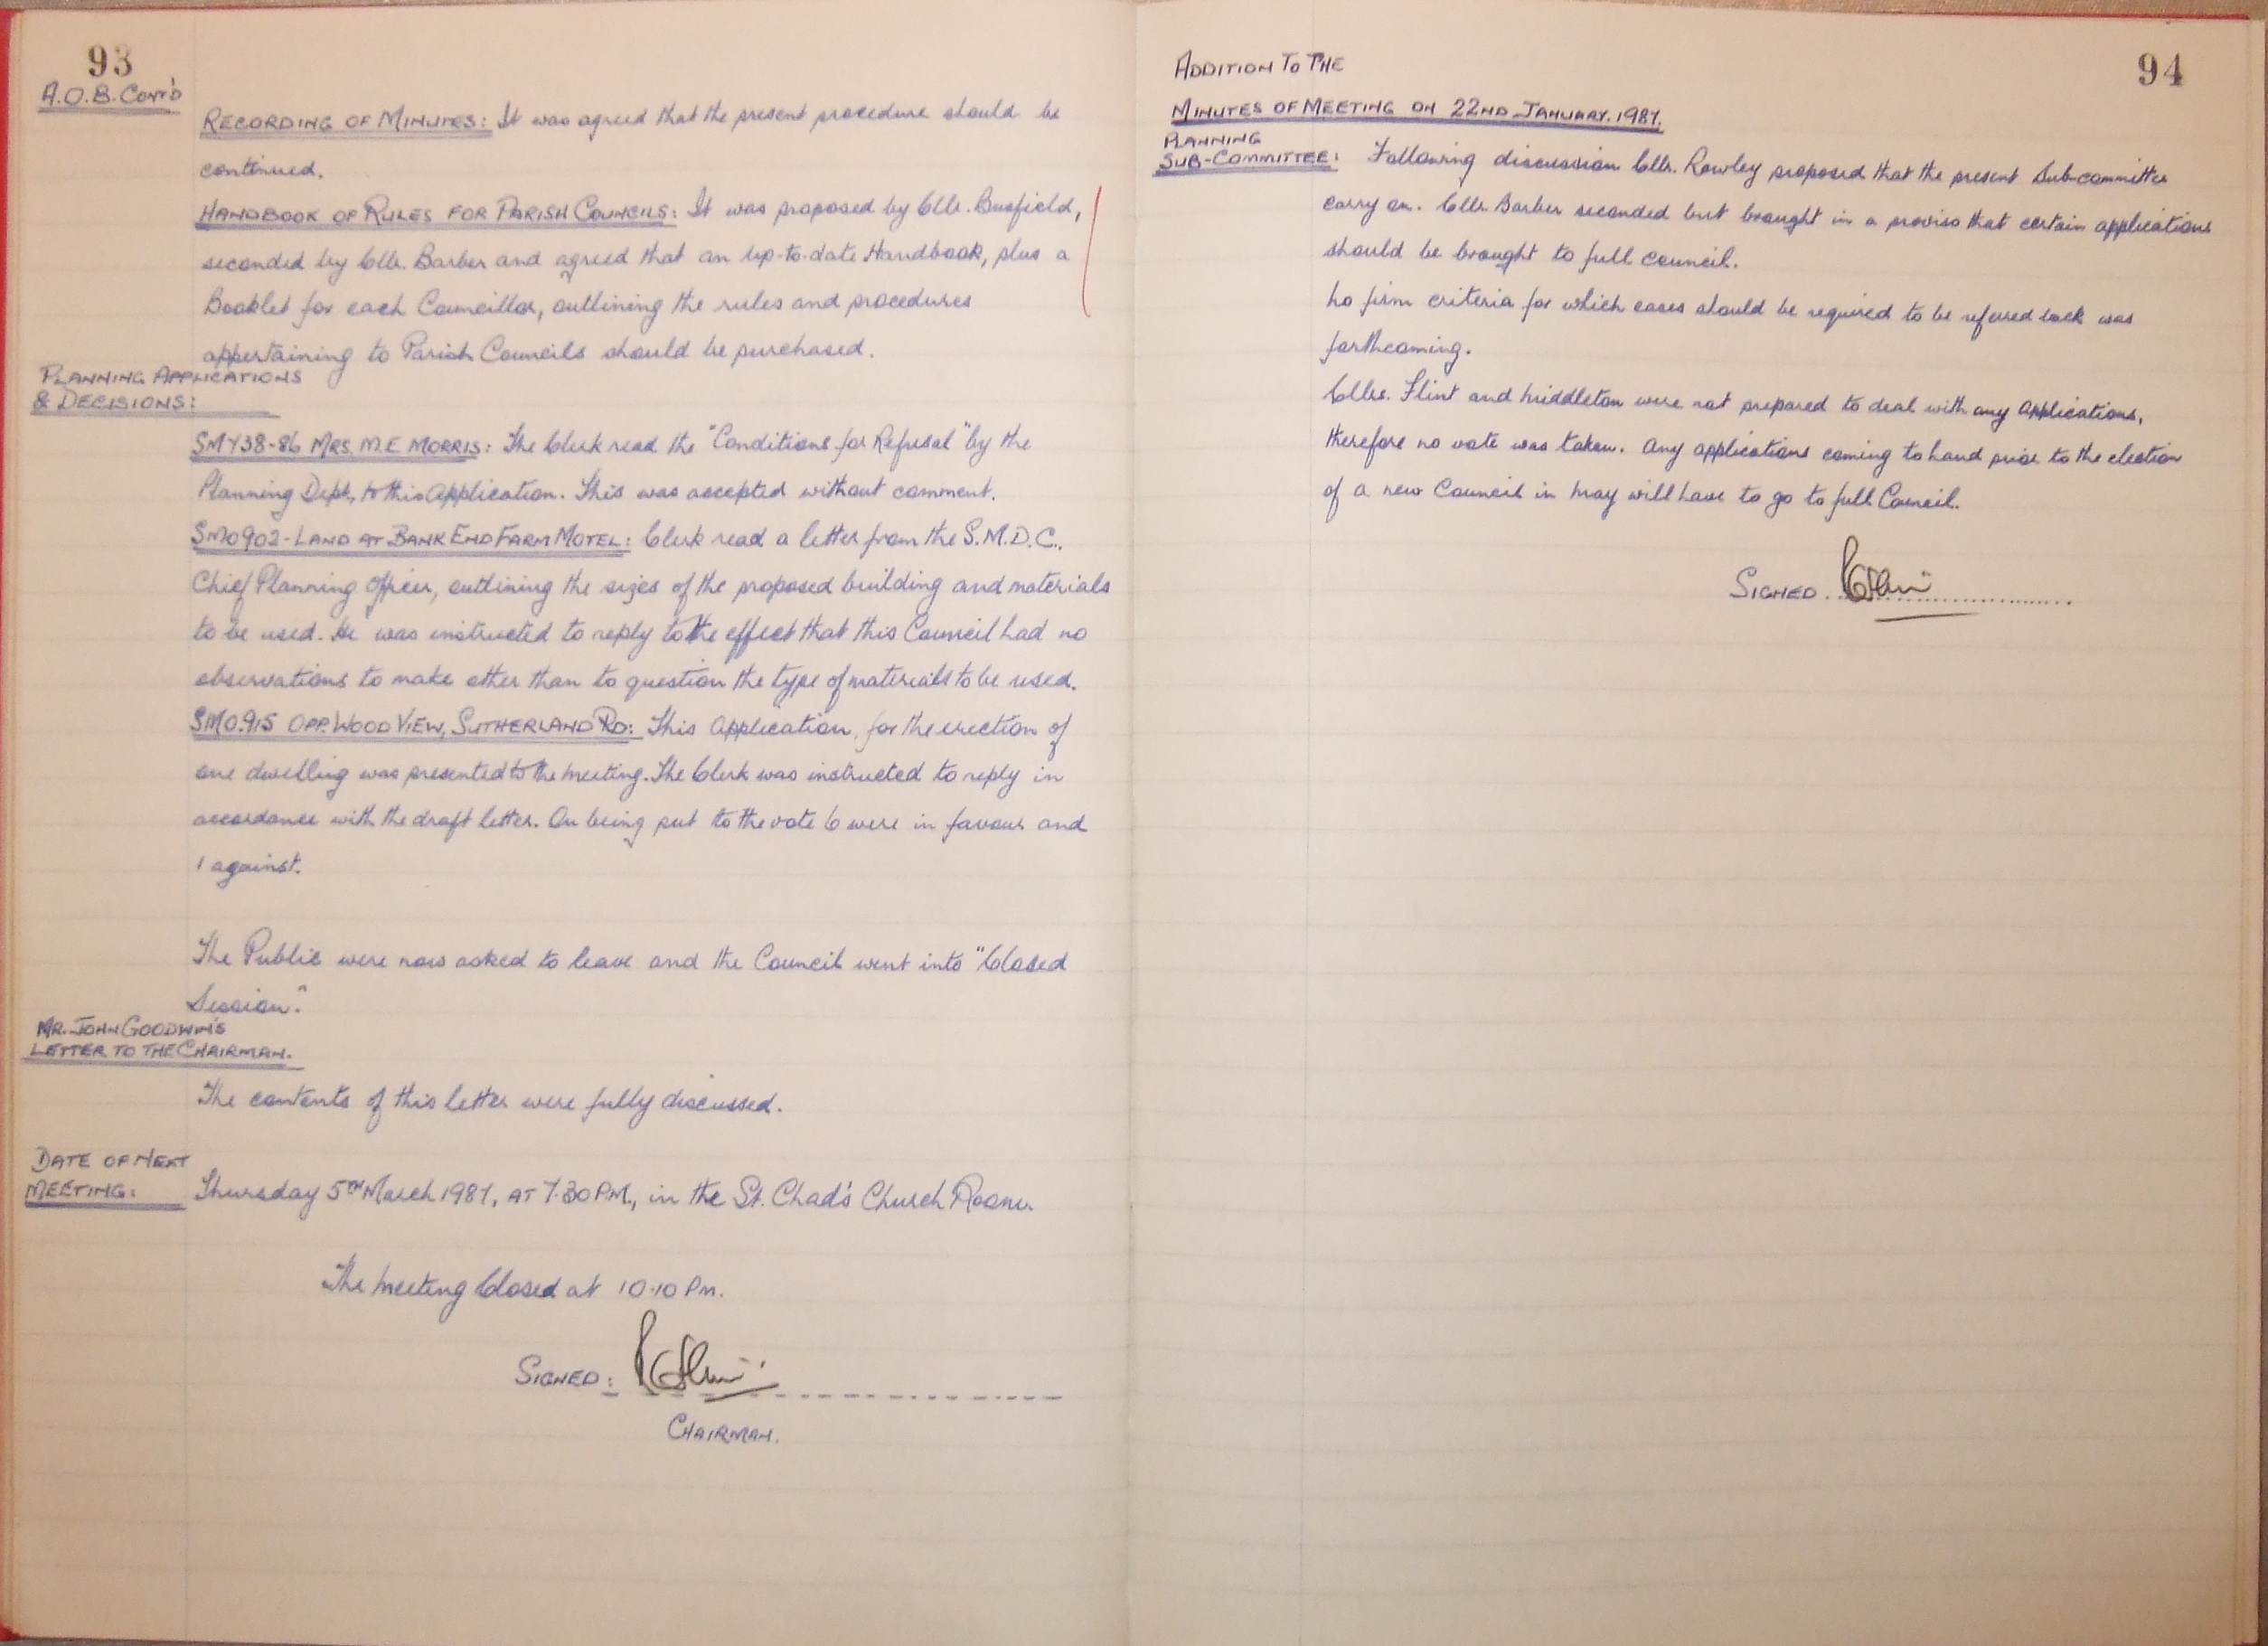 93
A.O.B. Cont'd
RECORDING OF MINUTES: It was agreed that the present procedure should be
continued.
HANDBOOK OF RULES FOR PARISH COUNCILS: It was proposed by Cllr. Busfield,
seconded by Cllr. Barber and agreed that an up-to-date Handbook, plus a
Booklet for each Councillor, outlining the rules and procedures
appertaining to Parish Councils should be purchased.
PLANNING APPLICATIONS
& DECISIONS:
SM738-86 MRS. M.E MORRIS: The Clerk read the "Conditions for Refusal" by the
Planning Dept, to this Application. This was accepted without comment.
SM0902-LAND AT BANK END FARM MOTEL: Clerk read a letter from the S.M.D.C.,
Chief Planning Officer, outlining the sizes of the proposed building and materials
to be used. He was instructed to reply to the effect that this Council had no
observations to make other than to question the type of materials to be used.
SM0.915 OPP. WOOD VIEW, SUTHERLAND RD: This Application, for the erection of
one dwelling was presented to the Meeting. The Clerk was instructed to reply in
accordance with the draft letter. On being put to the vote 6 were in favour and
1 against.
The Public were now asked to leave and the Council went into "Closed
Session."
MR. JOHN GOODWIN'S
LETTER TO THE CHAIRMAN.
The contents of this letter were fully discussed.
DATE OF NEXT
MEETING: Thursday 5TH March 1987, AT 7.30 PM., in the St. Chad's Church Room.
The Meeting Closed at 10.10 Pm.
SIGNED:
CHAIRMAN.
94
ADDITION TO THE
MINUTES OF MEETING ON 22ND JANUARY. 1987.
PLANNING
SUB-COMMITTEE: Following discussion Cllr. Rowley proposed that the present Sub-committee
carry on. Cllr. Barber seconded but brought in a proviso that certain applications
should be brought to full council.
No firm criteria for which cases should be required to be refered back was
forthcoming.
Cllrs. Flint and Middleton were not prepared to deal with any Applications,
therefore no vote was taken. Any applications coming to hand prior to the election
of a new Council in May will have to go to full Council.
SIGNED